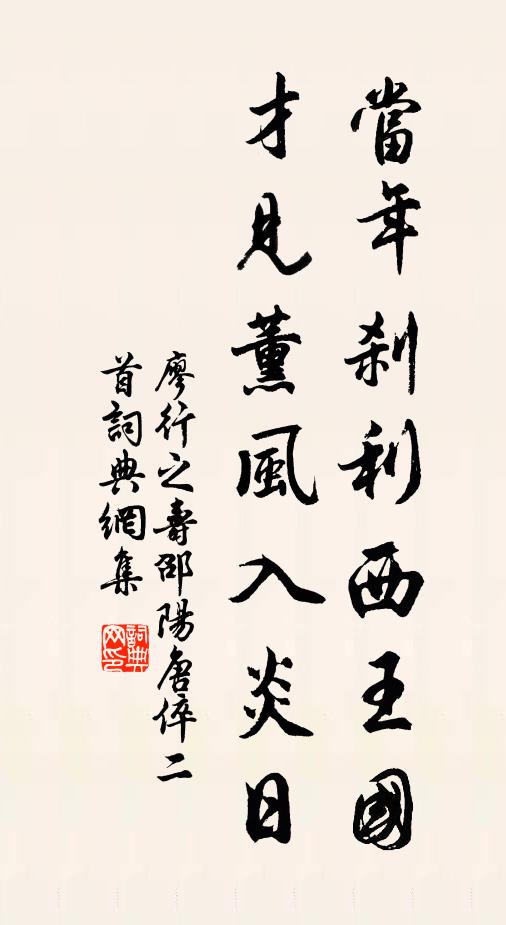 當年刹利西王國
才見薰風入炎日
廖行之壽邵陽唐倅二
首詞典網集
詞典
网印